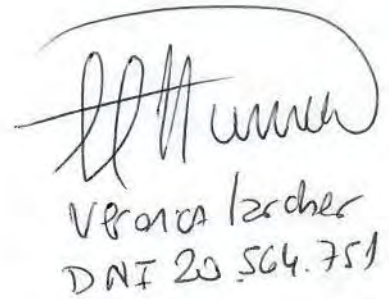 Veronica Larcher
DNI 20.564.751